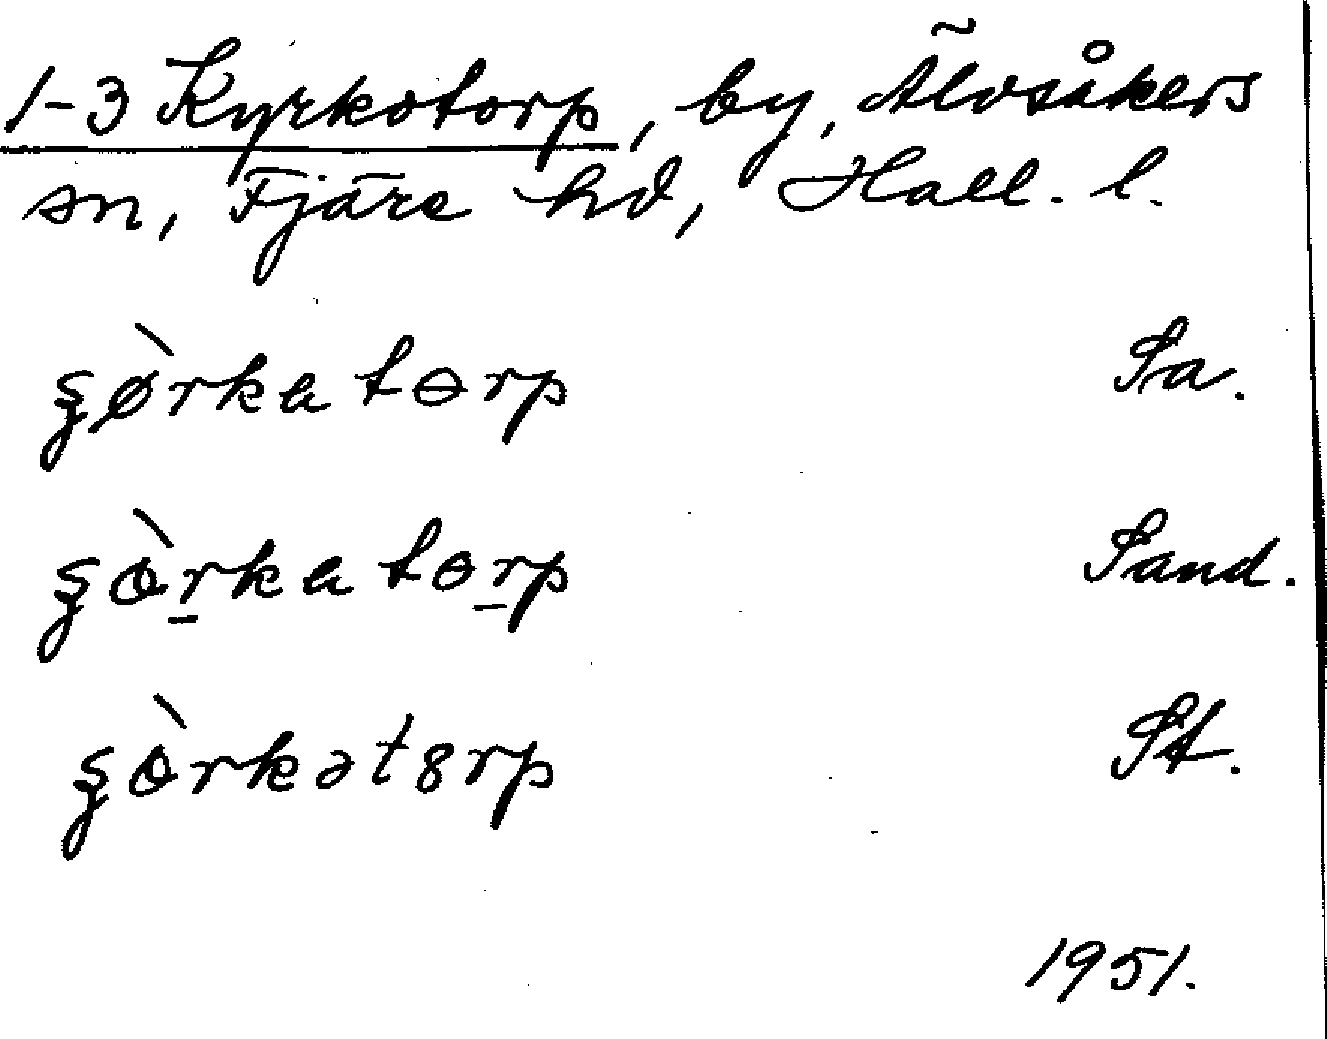 1-3 Kyrkotorp, by, Älvsåkers
sn, Fjäre hd, Hall. l.
ʂø̀rkatɵrp Sa.
ʂɵ̀r̲katɵr̲p Sand.
ʂɵ̀rkət8rp St.
1951.